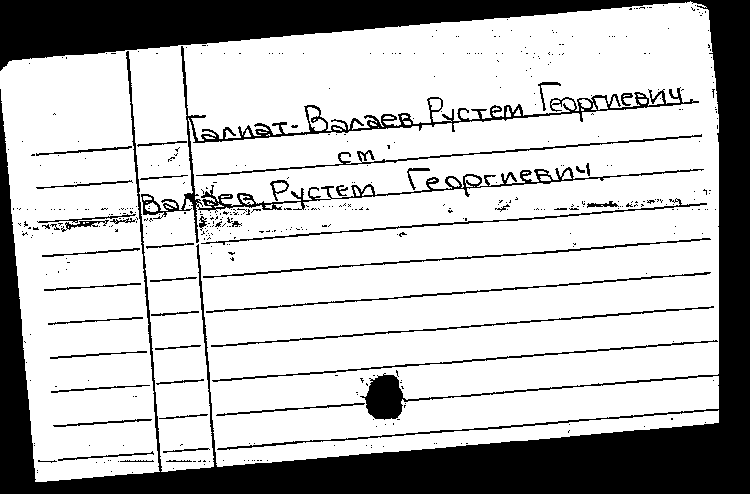 Галиат-Валаев, Рустем Георгиевич.
см.
Валаев, Рустем Георгиевич.